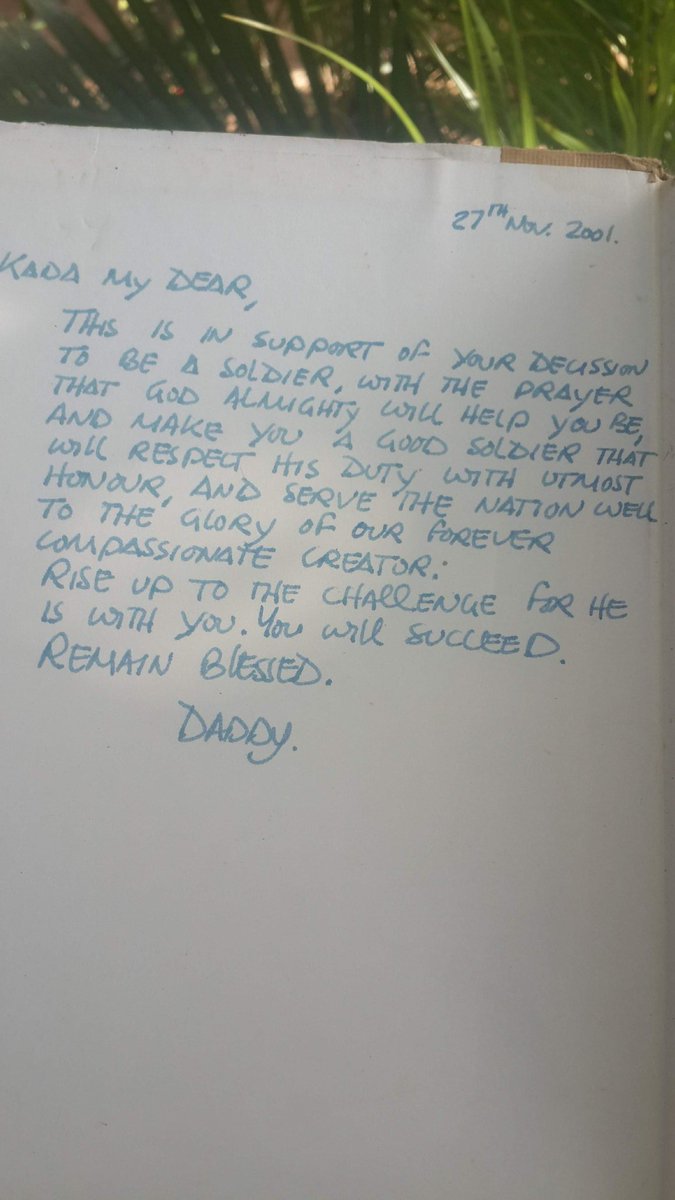 27TH Nov. 2001.
KADA My DEAR,
THIS IS IN SUPPORT OF YOUR DECISSION
TO BE A SOLDIER, WITH THE PRAYER
THAT GOD ALMIGHTY WILL HELP YOU BE,
AND MAKE YOU A GOOD SOLDIER THAT
WILL RESPECT HIS DUTY WITH UTMOST
HONOUR, AND SERVE THE NATION WELL
TO THE GLORY OF OUR FOREVER
COMPASSIONATE CREATOR:
RISE UP TO THE CHALLENGE FOR HE
IS WITH YOU. YOU WILL SUCCEED.
REMAIN BLESSED.
DADDY.